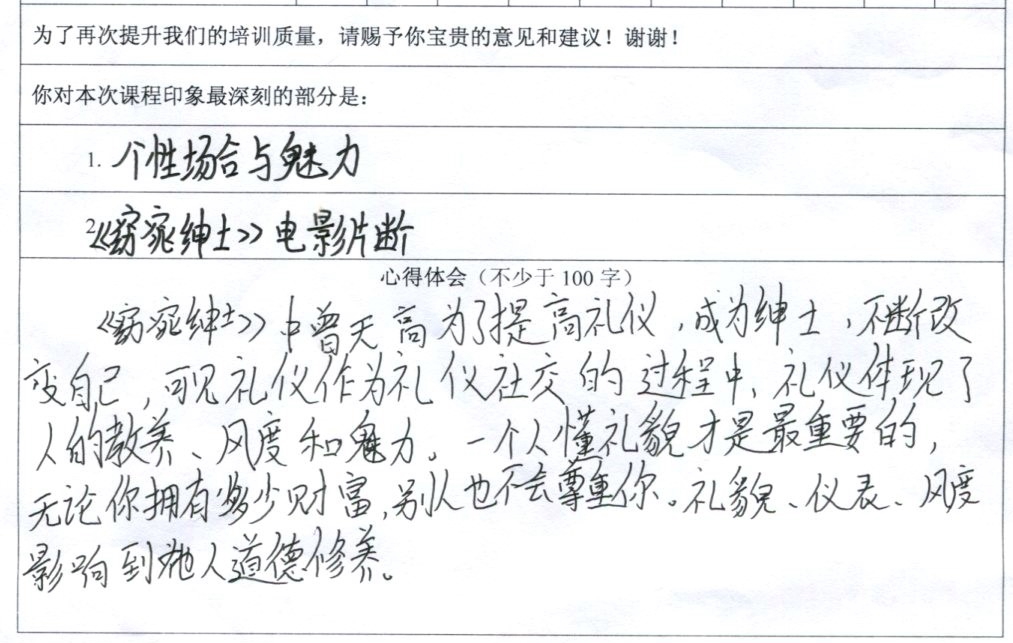 为了再次提升我们的培训质量，请赐予你宝贵的意见和建议！谢谢！
你对本次课程印象最深刻的部分是：
1. 个性场合与魅力
2《窈窕绅士》电影片断
心得体会（不少于 100 字）
《窈窕绅士》中曾天高为了提高礼仪，成为绅士，不断改
变自己，可见礼仪作为礼仪社交的过程中、礼仪体现了
人的教养、风度和魅力。一个人懂礼貌才是最重要的，
无论你拥有多少财富，别人也不会尊重你。礼貌、仪表、风度
影响到他人道德修养。